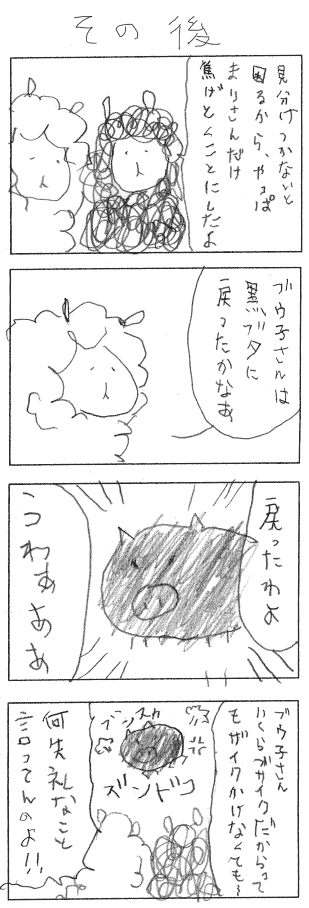 その後
見分けつかないと
困るから、やっぱ
まりさんだけ
焦げとくことにしたよ
ブウ子さんは
黒ブタに
戻ったかなあ
戻ったわよ
うわぁぁぁ
ブウ子さん
いくらブサイクだからって
モザイクかけなくても～
ブンスカ
ズンドコ
何失礼なこと
言ってんのよ!!